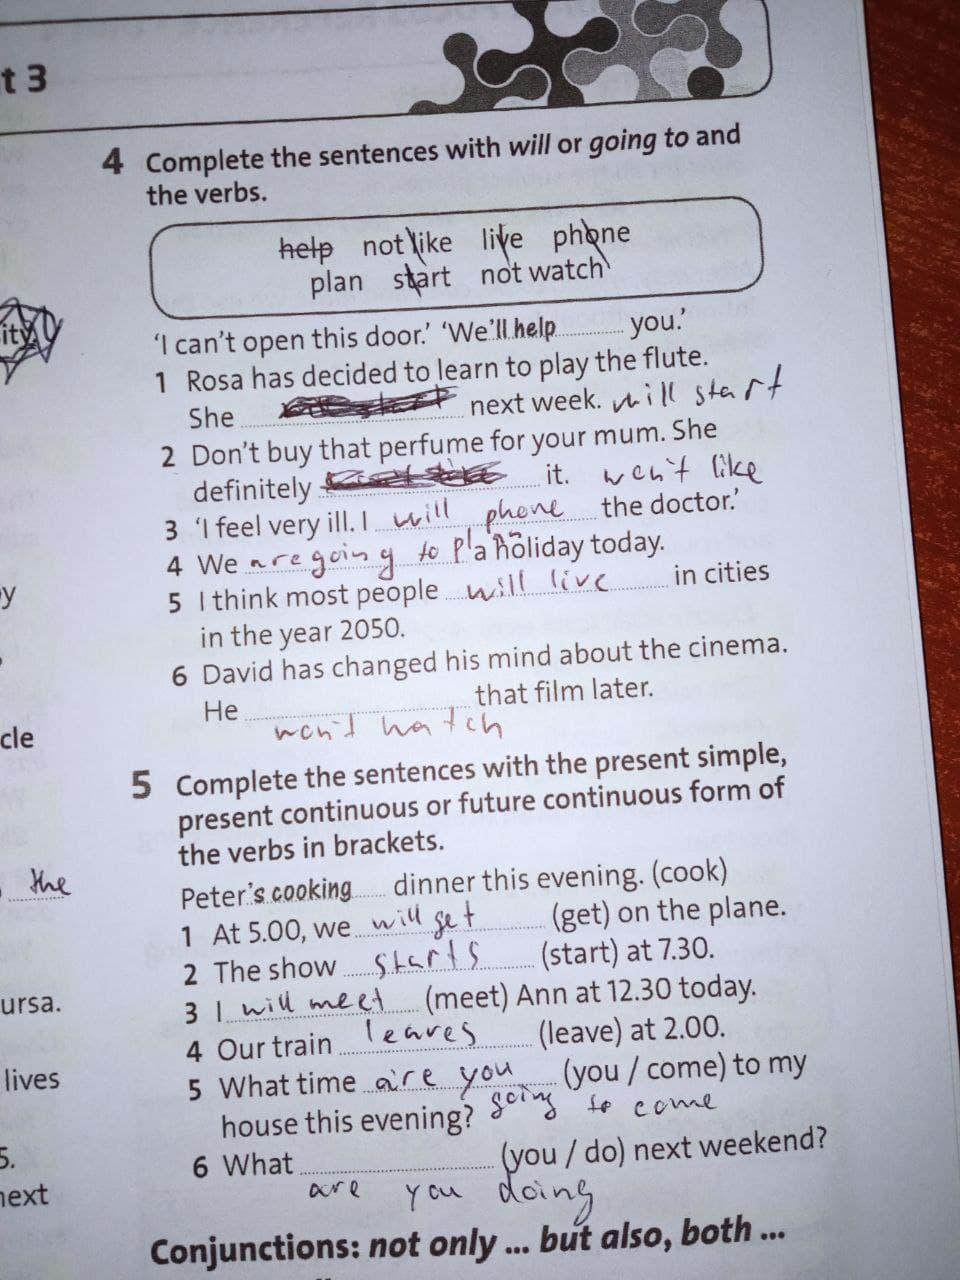 t 3
4 Complete the sentences with will or going to and
the verbs.
help not like live phone
plan start not watch
'I can't open this door.' 'We'll help you.'
1 Rosa has decided to learn to play the flute.
She next week. will start
2 Don't buy that perfume for your mum. She
definitely it. won't like
3 'I feel very ill. I will phone the doctor.'
4 We are going to plan a holiday today.
5 I think most people will live in cities
in the year 2050.
6 David has changed his mind about the cinema.
He that film later.
won't watch
5 Complete the sentences with the present simple,
present continuous or future continuous form of
the verbs in brackets.
Peter's cooking dinner this evening. (cook)
1 At 5.00, we will get (get) on the plane.
2 The show starts (start) at 7.30.
3 I will meet (meet) Ann at 12.30 today.
4 Our train leaves (leave) at 2.00.
5 What time are you (you / come) to my
house this evening? going to come
6 What (you / do) next weekend?
are you doing
Conjunctions: not only ... but also, both ...
ity
y
cle
the
ursa.
lives
5.
next